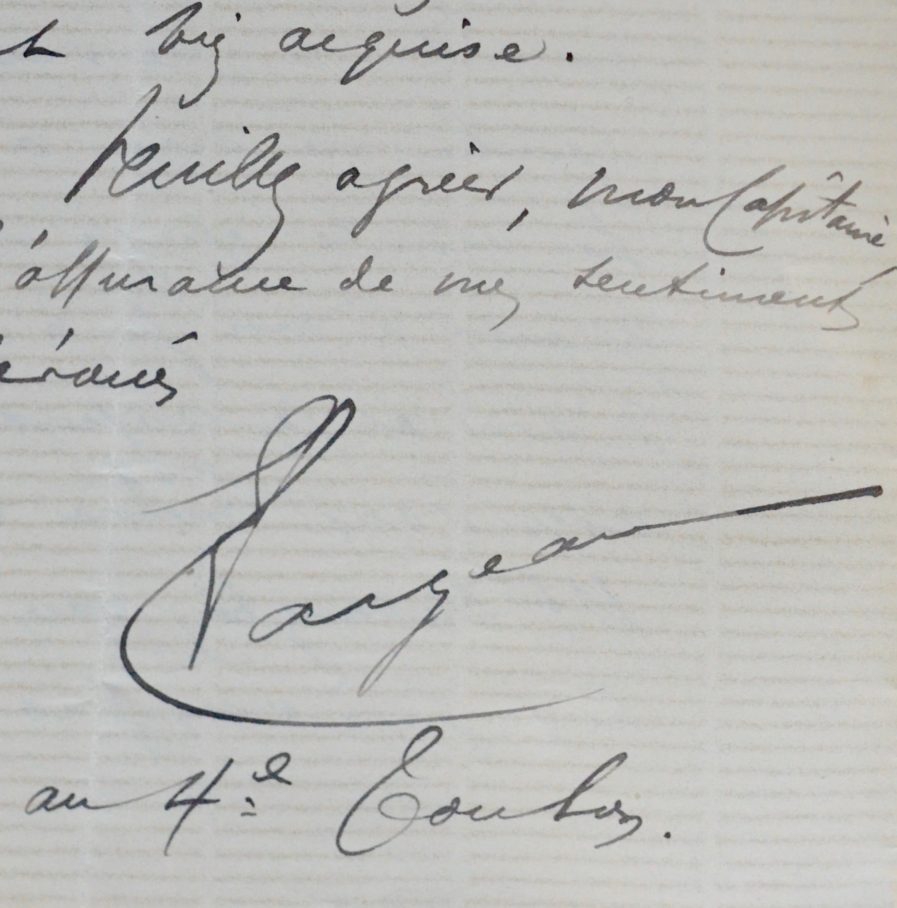 bien acquise.
Veuillez agréer, mon Capitaine,
l'assurance de mes sentiments
dévoués
Largeau
au 4e Toulon.